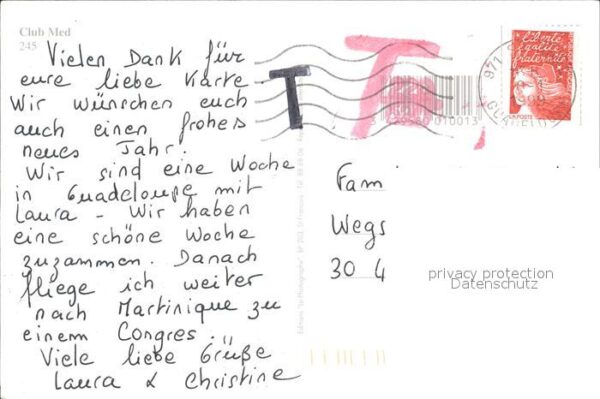 Club Med
245
Vielen Dank für
eure liebe Karte
Wir wünschen euch
auch einen frohes
neues Jahr.
Wir sind eine Woche
in Guadeloupe mit
Laura - Wir haben
eine schöne Woche
zuzammen. Danach
fliege ich weiter
nach Martinique zu
einem Congres.
Viele liebe Grüße
Laura & Christine
T
T
010013
971
1999
liberté
égalité
fraternité
LA POSTE
Fam
Wegs
30 4
privacy protection
Datenschutz